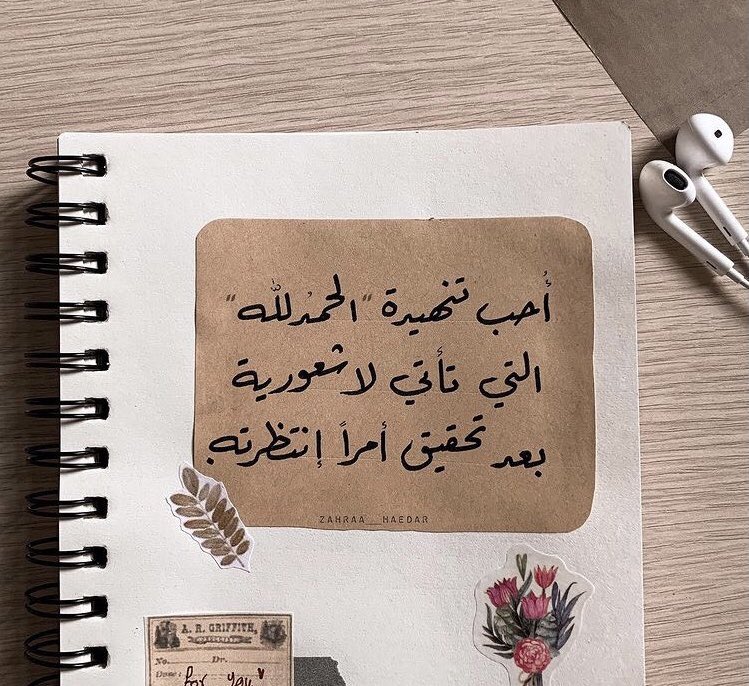 أُحب تنهيدة "الحمدُلله"
التي تأتي لا شعورية
بعد تحقيق أمراً إنتظرته.
ZAHRAA__HAEDAR
A. R. GRIFFITH,
No. Dr.
Dose:
for you